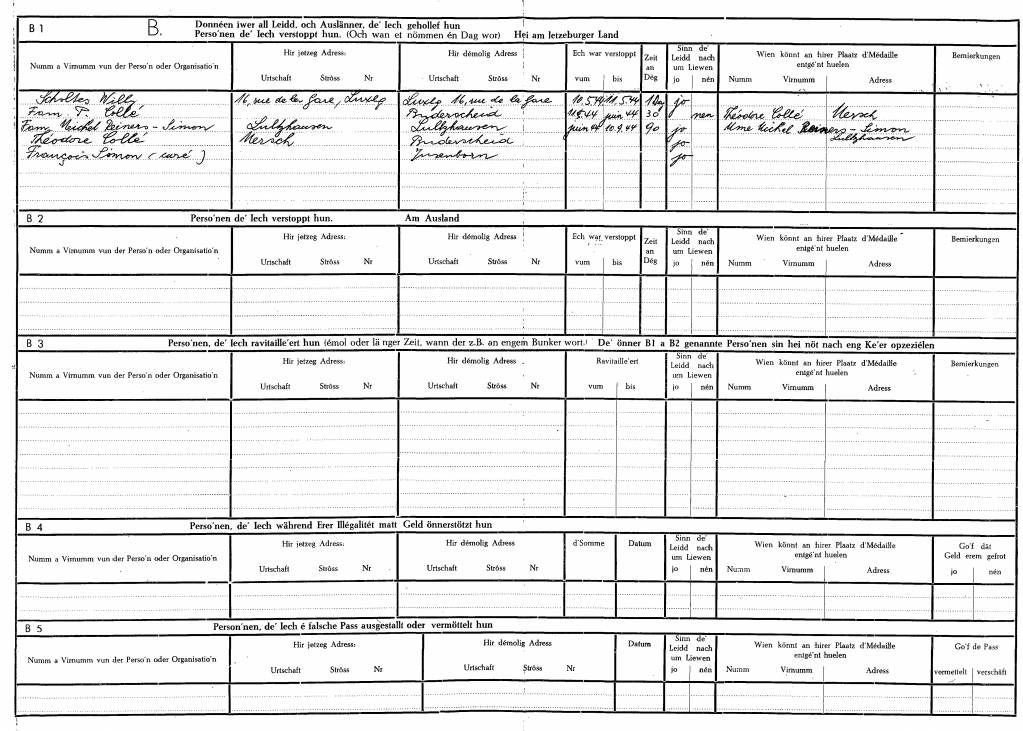 B 1
B.
Donnéen iwer all Leidd, och Auslänner, de' Iech gehollef hun
Perso'nen de' Iech verstoppt hun. (Och wan et nömmen én Dag wor) Hei am letzeburger Land
Numm a Virnumm vun der Perso'n oder Organisatio'n
Hir jetzeg Adress:
Urtschaft Ströss Nr
Hir démolig Adress
Urtschaft Ströss Nr
Ech war verstoppt
vum bis
Zeit
an
Dég
Sinn de'
Leidd nach
um Liewen
jo nén
Wien könnt an hirer Plaatz d'Médaille
entgé'nt huelen
Numm Virnumm Adress
Bemierkungen
Scholtes Willy 16, rue de la Gare, Luxbg Luxbg 16, rue de la Gare 10.5.44 11.5.44 1 Dag jo
Fam. P. Collé Büderscheid 11.5.44 juin 44 30 nen Théodore Collé Mersch
Fam. Michel Reiners - Simon Lultzhausen Lultzhausen juin 44 10.9.44 90 jo Mme Michel Reiners - Simon
Lultzhausen
Théodore Collé Mersch Büderscheid jo
François Simon (curé) Insenborn jo
B 2
Perso'nen de' Iech verstoppt hun. Am Ausland
Numm a Virnumm vun der Perso'n oder Organisatio'n
Hir jetzeg Adress:
Urtschaft Ströss Nr
Hir démolig Adress
Urtschaft Ströss Nr
Ech war verstoppt
vum bis
Zeit
an
Dég
Sinn de'
Leidd nach
um Liewen
jo nén
Wien könnt an hirer Plaatz d'Médaille
entgé'nt huelen
Numm Virnumm Adress
Bemierkungen
B 3
Perso'nen, de' Iech ravitaille'ert hun (émol oder länger Zeit, wann der z.B. an engem Bunker wort.) De' önner B1 a B2 genannte Perso'nen sin hei nöt nach eng Ke'er opzeziélen
Numm a Virnumm vun der Perso'n oder Organisatio'n
Hir jetzeg Adress:
Urtschaft Ströss Nr
Hir démolig Adress
Urtschaft Ströss Nr
Ravitaille'ert
vum bis
Sinn de'
Leidd nach
um Liewen
jo nén
Wien könnt an hirer Plaatz d'Médaille
entgé'nt huelen
Numm Virnumm Adress
Bemierkungen
B 4
Perso'nen, de' Iech während Erer Illégalitét matt Geld önnerstötzt hun
Numm a Virnumm vun der Perso'n oder Organisatio'n
Hir jetzeg Adress:
Urtschaft Ströss Nr
Hir démolig Adress
Urtschaft Ströss Nr
d'Somme
Datum
Sinn de'
Leidd nach
um Liewen
jo nén
Wien könnt an hirer Plaatz d'Médaille
entgé'nt huelen
Numm Virnumm Adress
Go'f dât
Geld erem gefrot
jo nén
B 5
Person'nen, de' Iech é falsche Pass ausgestallt oder vermöttelt hun
Numm a Virnumm vun der Perso'n oder Organisatio'n
Hir jetzeg Adress:
Urtschaft Ströss Nr
Hir démolig Adress
Urtschaft Ströss Nr
Datum
Sinn de'
Leidd nach
um Liewen
jo nén
Wien könnt an hirer Plaatz d'Médaille
entgé'nt huelen
Numm Virnumm Adress
Go'f de Pass
vermettelt verschâft